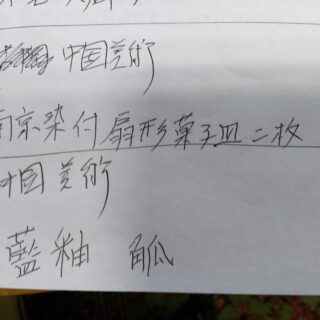 中国美術
南京染付 扇形菓子皿 二枚
中国美術
藍釉 觚